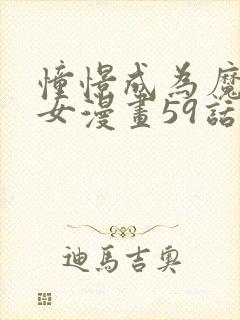 憧憬成為魔
女漫畫59話
迪馬吉奧